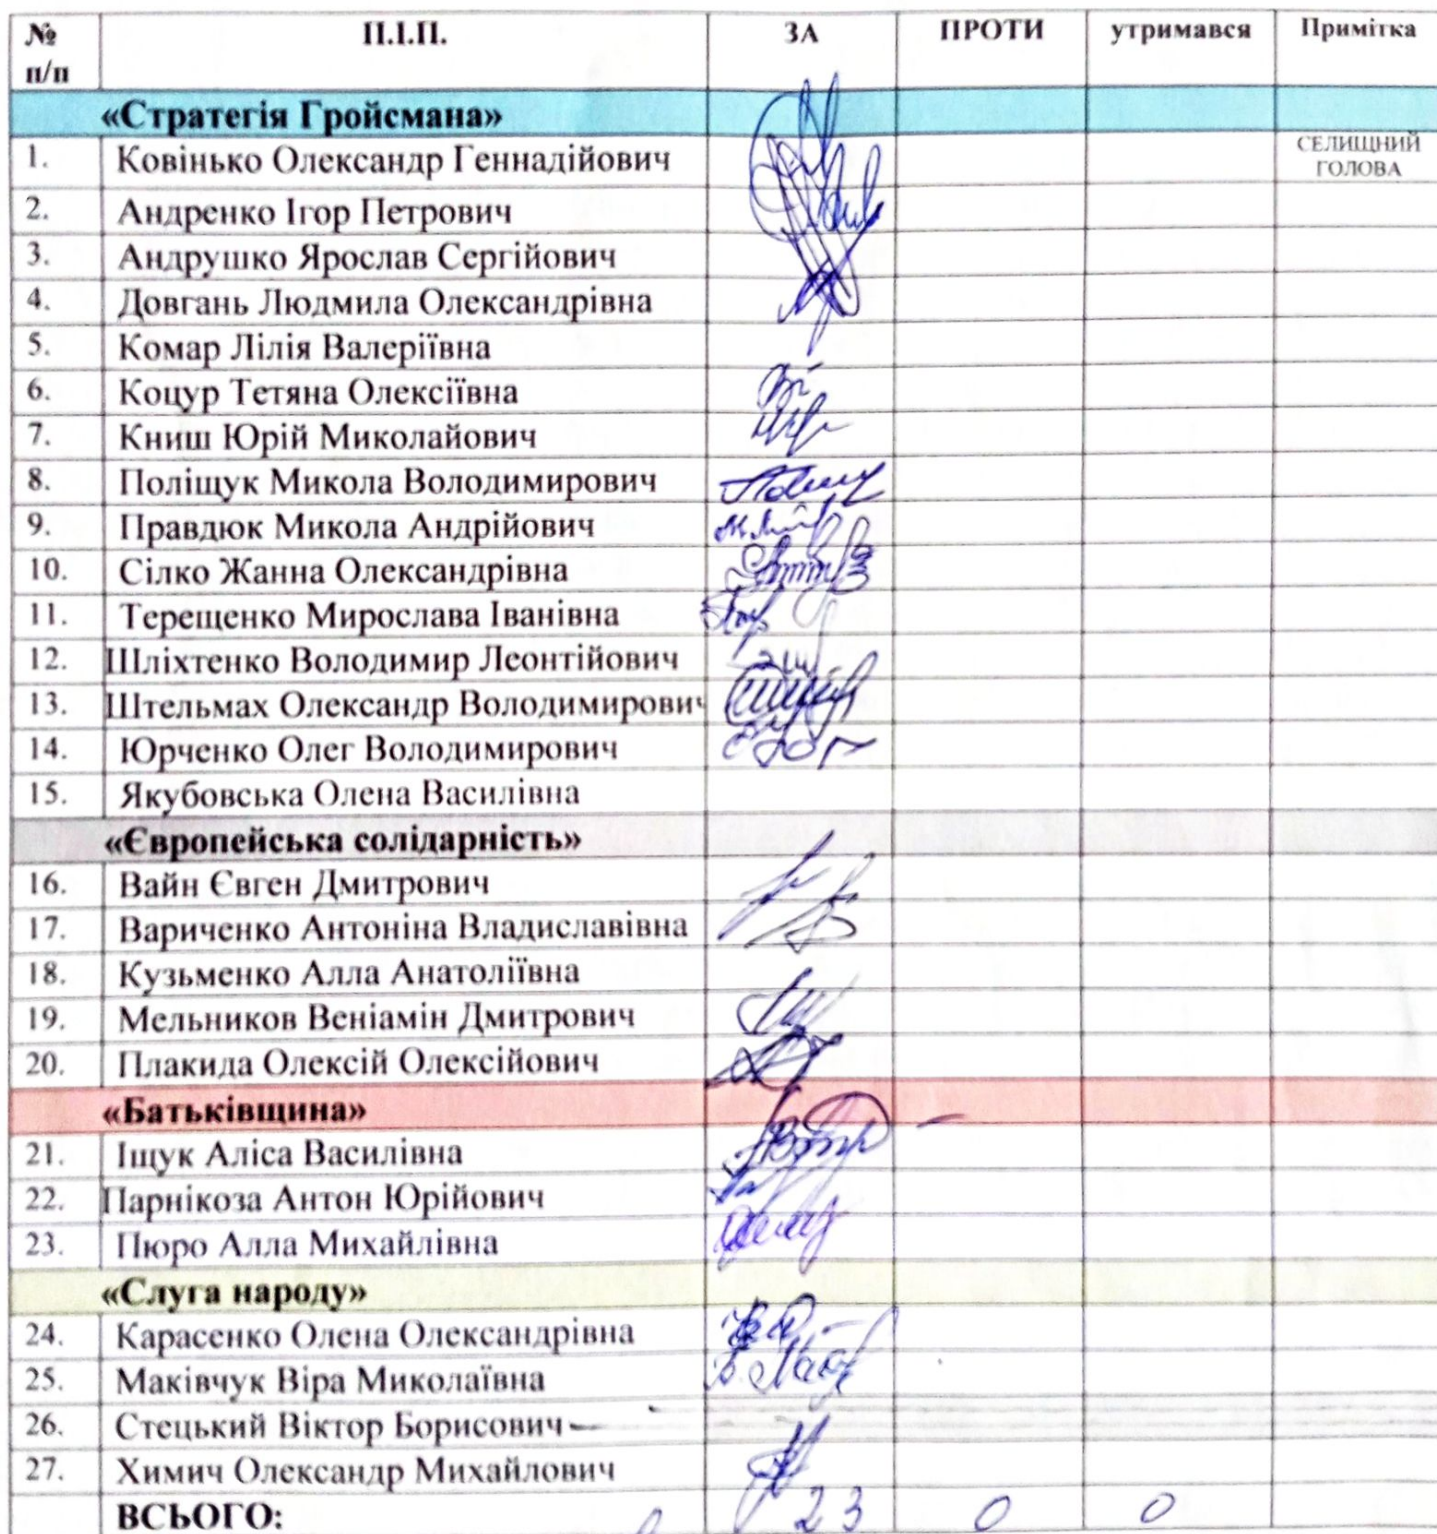 № п/п П.І.П. ЗА ПРОТИ утримався Примітка
«Стратегія Гройсмана»
1. Ковінько Олександр Геннадійович СЕЛИЩНИЙ ГОЛОВА
2. Андренко Ігор Петрович
3. Андрушко Ярослав Сергійович
4. Довгань Людмила Олександрівна
5. Комар Лілія Валеріївна
6. Коцур Тетяна Олексіївна
7. Книш Юрій Миколайович
8. Поліщук Микола Володимирович
9. Правдюк Микола Андрійович
10. Сілко Жанна Олександрівна
11. Терещенко Мирослава Іванівна
12. Шліхтенко Володимир Леонтійович
13. Штельмах Олександр Володимирович
14. Юрченко Олег Володимирович
15. Якубовська Олена Василівна
«Європейська солідарність»
16. Вайн Євген Дмитрович
17. Вариченко Антоніна Владиславівна
18. Кузьменко Алла Анатоліївна
19. Мельников Веніамін Дмитрович
20. Плакида Олексій Олексійович
«Батьківщина»
21. Іщук Аліса Василівна
22. Парнікоза Антон Юрійович
23. Пюро Алла Михайлівна
«Слуга народу»
24. Карасенко Олена Олександрівна
25. Маківчук Віра Миколаївна
26. Стецький Віктор Борисович
27. Химич Олександр Михайлович
ВСЬОГО: 23 0 0